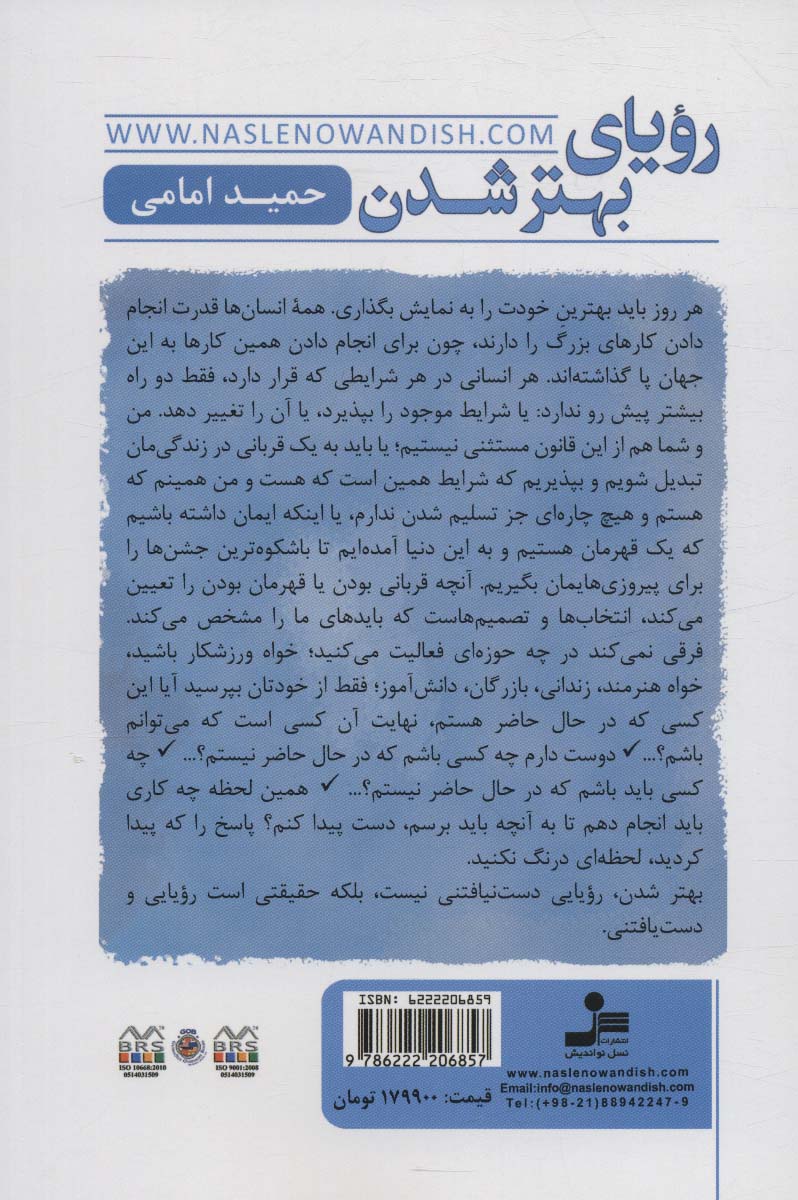 رؤیای
بهتر شدن
WWW.NASLENOWANDISH.COM
حمید امامی
هر روز باید بهترینِ خودت را به نمایش بگذاری. همهٔ انسان‌ها قدرت انجام
دادن کارهای بزرگ را دارند، چون برای انجام دادن همین کارها به این
جهان پا گذاشته‌اند. هر انسانی در هر شرایطی که قرار دارد، فقط دو راه
بیشتر پیش رو ندارد: یا شرایط موجود را بپذیرد، یا آن را تغییر دهد. من
و شما هم از این قانون مستثنی نیستیم؛ یا باید به یک قربانی در زندگی‌مان
تبدیل شویم و بپذیریم که شرایط همین است که هست و من همینم که
هستم و هیچ چاره‌ای جز تسلیم شدن ندارم، یا اینکه ایمان داشته باشیم
که یک قهرمان هستیم و به این دنیا آمده‌ایم تا باشکوه‌ترین جشن‌ها را
برای پیروزی‌هایمان بگیریم. آنچه قربانی بودن یا قهرمان بودن را تعیین
می‌کند، انتخاب‌ها و تصمیم‌هاست که بایدهای ما را مشخص می‌کند.
فرقی نمی‌کند در چه حوزه‌ای فعالیت می‌کنید؛ خواه ورزشکار باشید،
خواه هنرمند، زندانی، بازرگان، دانش‌آموز؛ فقط از خودتان بپرسید آیا این
کسی که در حال حاضر هستم، نهایت آن کسی است که می‌توانم
باشم؟... ✓ دوست دارم چه کسی باشم که در حال حاضر نیستم؟... ✓ چه
کسی باید باشم که در حال حاضر نیستم؟... ✓ همین لحظه چه کاری
باید انجام دهم تا به آنچه باید برسم، دست پیدا کنم؟ پاسخ را که پیدا
کردید، لحظه‌ای درنگ نکنید.
بهتر شدن، رؤیایی دست‌نیافتنی نیست، بلکه حقیقتی است رؤیایی و
دست‌یافتنی.
انتشارات
نسل نواندیش
www.naslenowandish.com
Email:info@naslenowandish.com
Tel:(+98-21)88942247-9
ISBN: 6222206859
9 786222 206857
قیمت: ۱۷۹۹۰۰ تومان
BRS
ISO 10668:2010
0514031509
GCB
BRS
ISO 9001:2008
0514031509